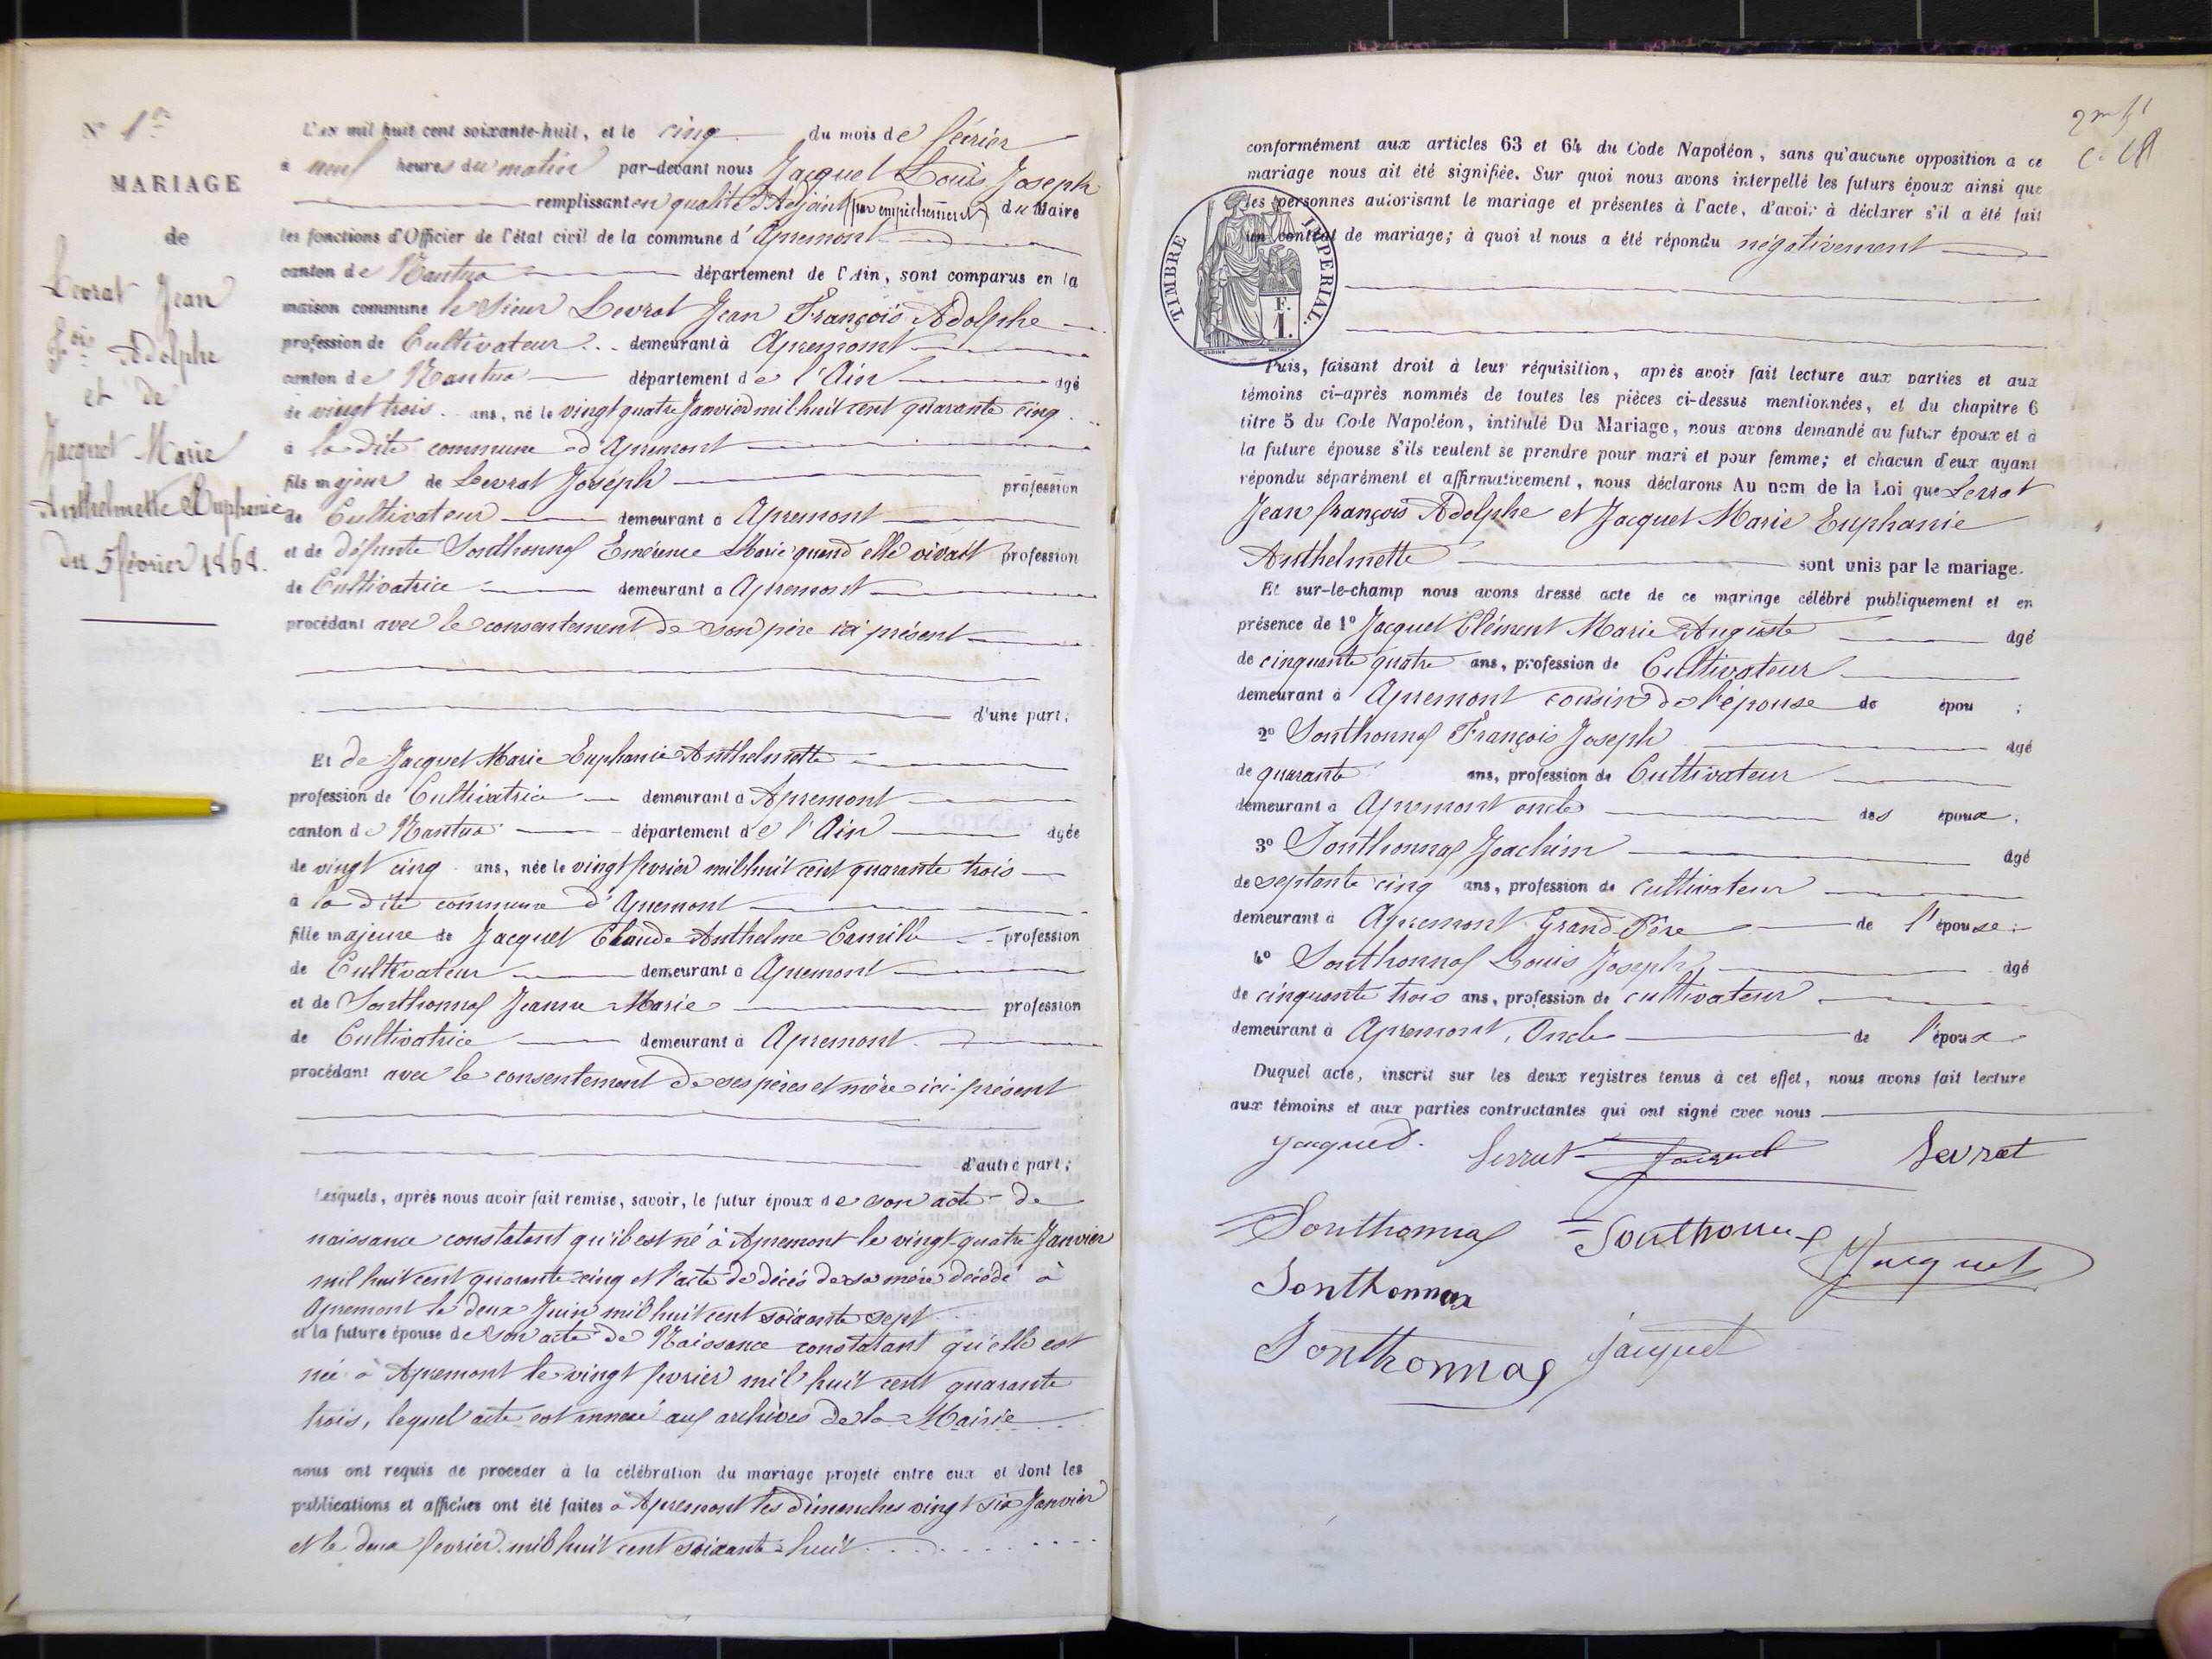 N° 1er
MARIAGE
de
Levrat Jean
Fois Adolphe
et de
Jacquet Marie
Anthelmette Euphanie
du 5 février 1868.
L'an mil huit cent soixante-huit, et le cinq du mois de février
à neuf heures du matin par-devant nous Jacquet Louis Joseph
remplissant en qualité d'Adjoint (par empêchement) du Maire
les fonctions d'Officier de l'état civil de la commune d'Apremont
canton de Nantua département de l'Ain, sont comparus en la
maison commune le sieur Levrat Jean François Adolphe
profession de Cultivateur demeurant à Apremont
canton de Nantua département de l'Ain âgé
de vingt trois ans, né le vingt quatre Janvier mil huit cent quarante cinq
à la dite commune d'Apremont
fils majeur de Levrat Joseph profession
de Cultivateur demeurant à Apremont
et de défunte Sonthonnax Emérence Marie quand elle vivait profession
de Cultivatrice demeurant à Apremont
procédant avec le consentement de son père ici présent
d'une part;
Et de Jacquet Marie Euphanie Anthelmette
profession de Cultivatrice demeurant à Apremont
canton de Nantua département de l'Ain âgée
de vingt cinq ans, née le vingt fevrier mil huit cent quarante trois
à la dite commune d'Apremont
fille majeure de Jacquet Claude Anthelme Camille profession
de Cultivateur demeurant à Apremont
et de Sonthonnax Jeanne Marie profession
de Cultivatrice demeurant à Apremont
procédant avec le consentement de ses pères et mère ici présent
d'autre part;
Lesquels, après nous avoir fait remise, savoir, le futur époux de son acte de
naissance constatant qu'il est né à Apremont le vingt-quatre Janvier
mil huit cent quarante cinq et l'acte de décès de sa mère décédé à
Apremont le deux Juin mil huit cent soixante sept
et la future épouse de son acte de Naissance constatant qu'elle est
née à Apremont le vingt fevrier mil huit cent quarante
trois, lequel acte est annexé aux archives de la Mairie
nous ont requis de procéder à la célébration du mariage projeté entre eux et dont les
publications et affiches ont été faites à Apremont les dimanches vingt six Janvier
et le deux fevrier mil huit cent soixante-huit
conformément aux articles 63 et 64 du Code Napoléon, sans qu'aucune opposition a ce
mariage nous ait été signifiée. Sur quoi nous avons interpellé les futurs époux ainsi que
les personnes autorisant le mariage et présentes à l'acte, d'avoir à déclarer s'il a été fait
un contrat de mariage; à quoi il nous a été répondu négativement
TIMBRE IMPERIAL.
F.
1.
Puis, faisant droit à leur réquisition, après avoir fait lecture aux parties et aux
témoins ci-après nommés de toutes les pièces ci-dessus mentionnées, et du chapitre 6
titre 5 du Code Napoléon, intitulé Du Mariage, nous avons demandé au futur époux et à
la future épouse s'ils veulent se prendre pour mari et pour femme; et chacun d'eux ayant
répondu séparément et affirmativement, nous déclarons Au nom de la Loi que Levrat
Jean françois Adolphe et Jacquet Marie Euphanie
Anthelmette sont unis par le mariage.
Et sur-le-champ nous avons dressé acte de ce mariage célébré publiquement et en
présence de 1° Jacquet Clément Marie Auguste âgé
de cinquante quatre ans, profession de Cultivateur
demeurant à Apremont cousin de l'épouse de épou ;
2° Sonthonnax François Joseph âgé
de quarante ans, profession de Cultivateur
demeurant à Apremont oncle des époux;
3° Sonthonnax Joachim âgé
de septante cinq ans, profession de cultivateur
demeurant à Apremont Grand-Père de l'épouse;
4° Sonthonnax Louis Joseph âgé
de cinquante trois ans, profession de cultivateur
demeurant à Apremont, Oncle de l'époux
Duquel acte, inscrit sur les deux registres tenus à cet effet, nous avons fait lecture
aux témoins et aux parties contractantes qui ont signé avec nous
Jacquet. Levrat Jacquet Levrat
Sonthonnax Sonthonnax Jacquet
Sonthonnax
Sonthonnax Jacquet